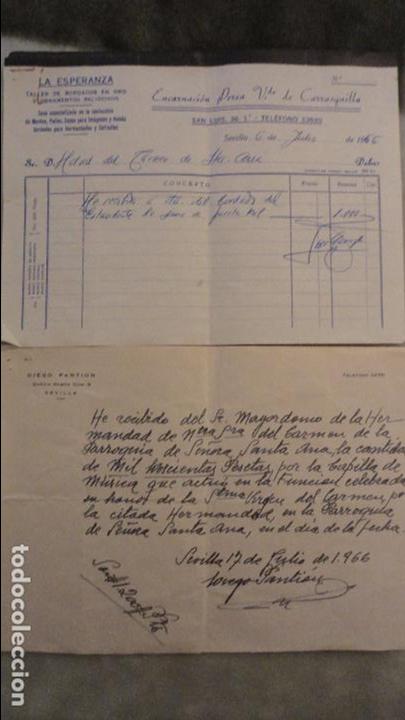 LA ESPERANZA
TALLER DE BORDADOS EN ORO
Y ORNAMENTOS RELIGIOSOS
Casa especializada en la confección
de Mantos, Palios, Sayas para Imágenes y demás
bordados para Hermandades y Cofradías
N.º
Encarnación Perea Vda de Carrasquilla
SAN LUIS, 36 1.º - TELÉFONO
Sevilla 6 de Julio de 1966
Sr. D. Hdad del Carmen de Sta. Ana Debe:
CONCEPTO
He recibido a cta. del bordado del
Estandarte la suma de 1.000
DIEGO PANTION
SEVILLA
TELEFONO
He recibido del Sr. Mayordomo de la Her
mandad de Nera Sra del Carmen de la
Parroquia de Señora Santa Ana, la cantidad
de Mil Doscientas Pesetas, por la Capilla de
Música que actuó en la Funcion celebrada
en honor de la Sma Virgen del Carmen, por
la citada Hermandad, en la Parroquia
de Señora Santa Ana, en el dia de la fecha.
Sevilla 17 de Julio de 1.966
Diego Pantión
Son 1200 Pts
todocoleccion
todocoleccion.net